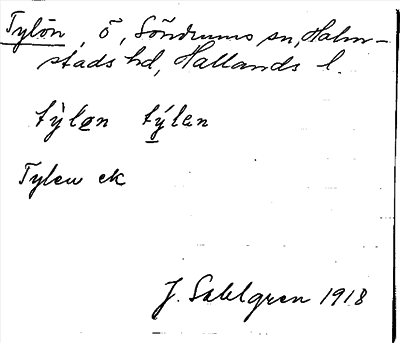 Tylön, ö, Söndrums sn, Halm-
stads hd, Hallands l.
tỳløn týlen
Tylen ek
J. Sahlgren 1918